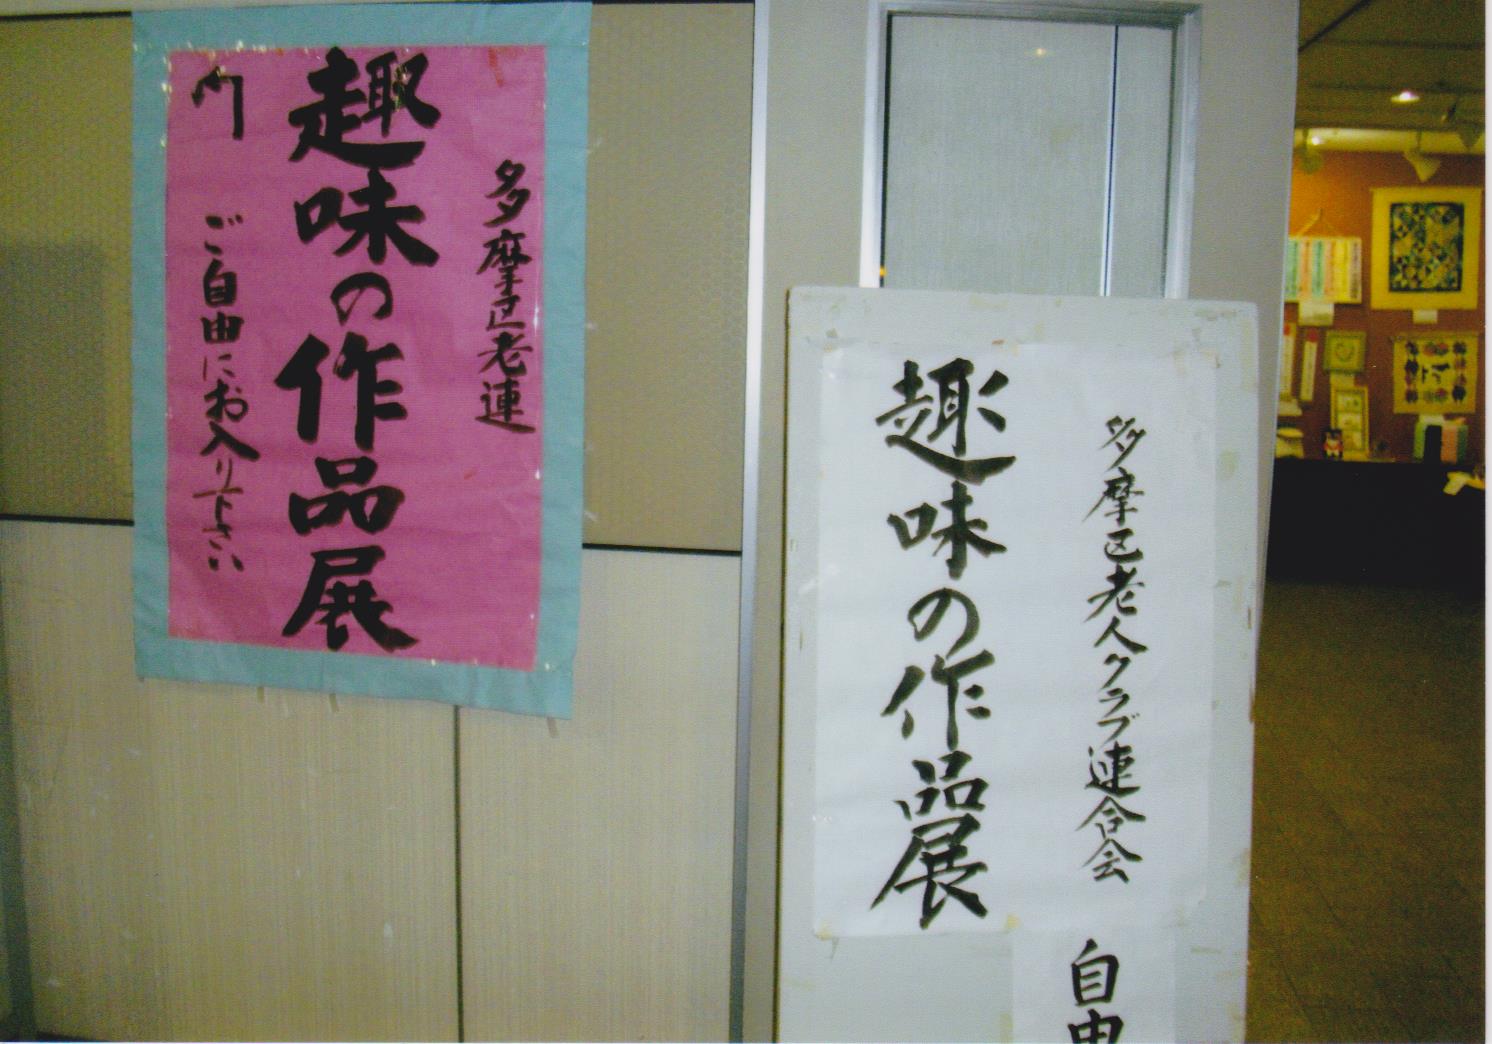 多摩区老連
趣味の作品展
ご自由にお入り下さい
多摩区老人クラブ連合会
趣味の作品展
自由